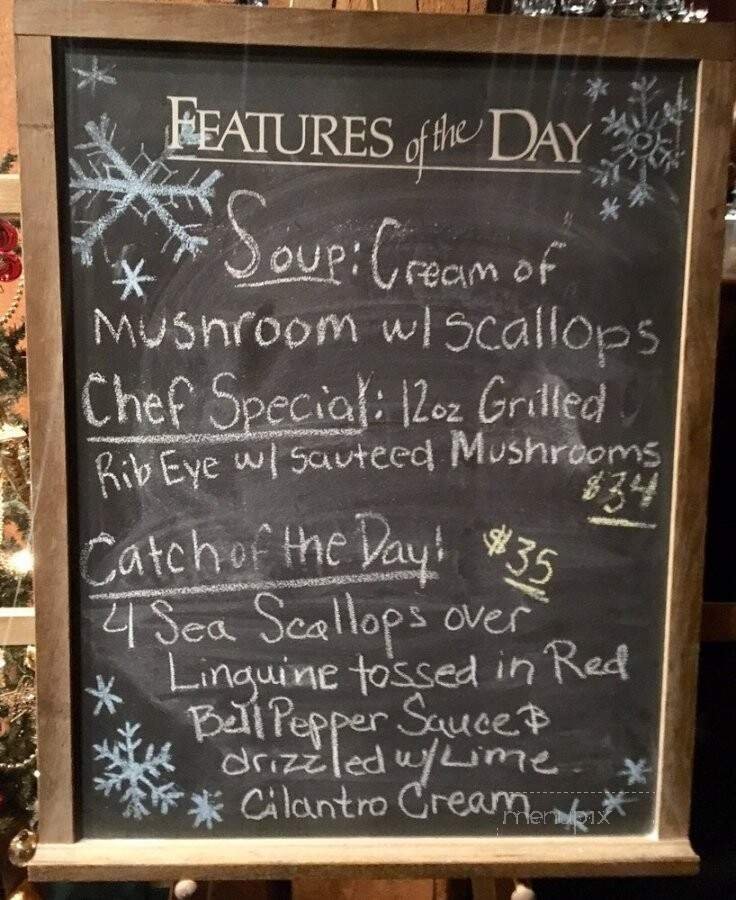 FEATURES of the DAY
Soup: Cream of
Mushroom w/ scallops
Chef Special: 12oz Grilled
Rib Eye w/ sauteed Mushrooms
$34
Catch of the Day! $35
4 Sea Scallops over
Linguine tossed in Red
Bell Pepper Sauce &
drizzled w/ Lime
Cilantro Cream
menupix